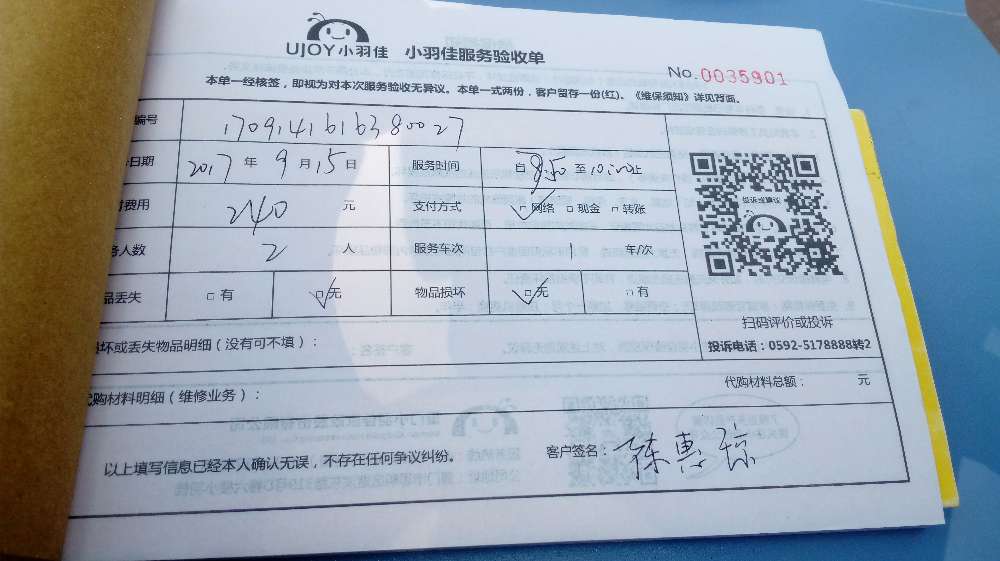 UJOY小羽佳 小羽佳服务验收单
No.0035901
本单一经核签，即视为对本次服务验收无异议。本单一式两份，客户留存一份(红)。《维保须知》详见背面。
编号 1709141616380027
日期 2017 年 9 月 15 日 服务时间 自 8:50 至 10:00 止
费用 240 元 支付方式 网络 现金 转账
人数 2 人 服务车次 1 车/次
品丢失 有 无 物品损坏 无 有
投诉或建议
扫码评价或投诉
投诉电话：0592-5178888转2
坏或丢失物品明细（没有可不填）：
代购材料明细（维修业务）： 代购材料总额： 元
以上填写信息已经本人确认无误，不存在任何争议纠纷。 客户签名：陈惠琼